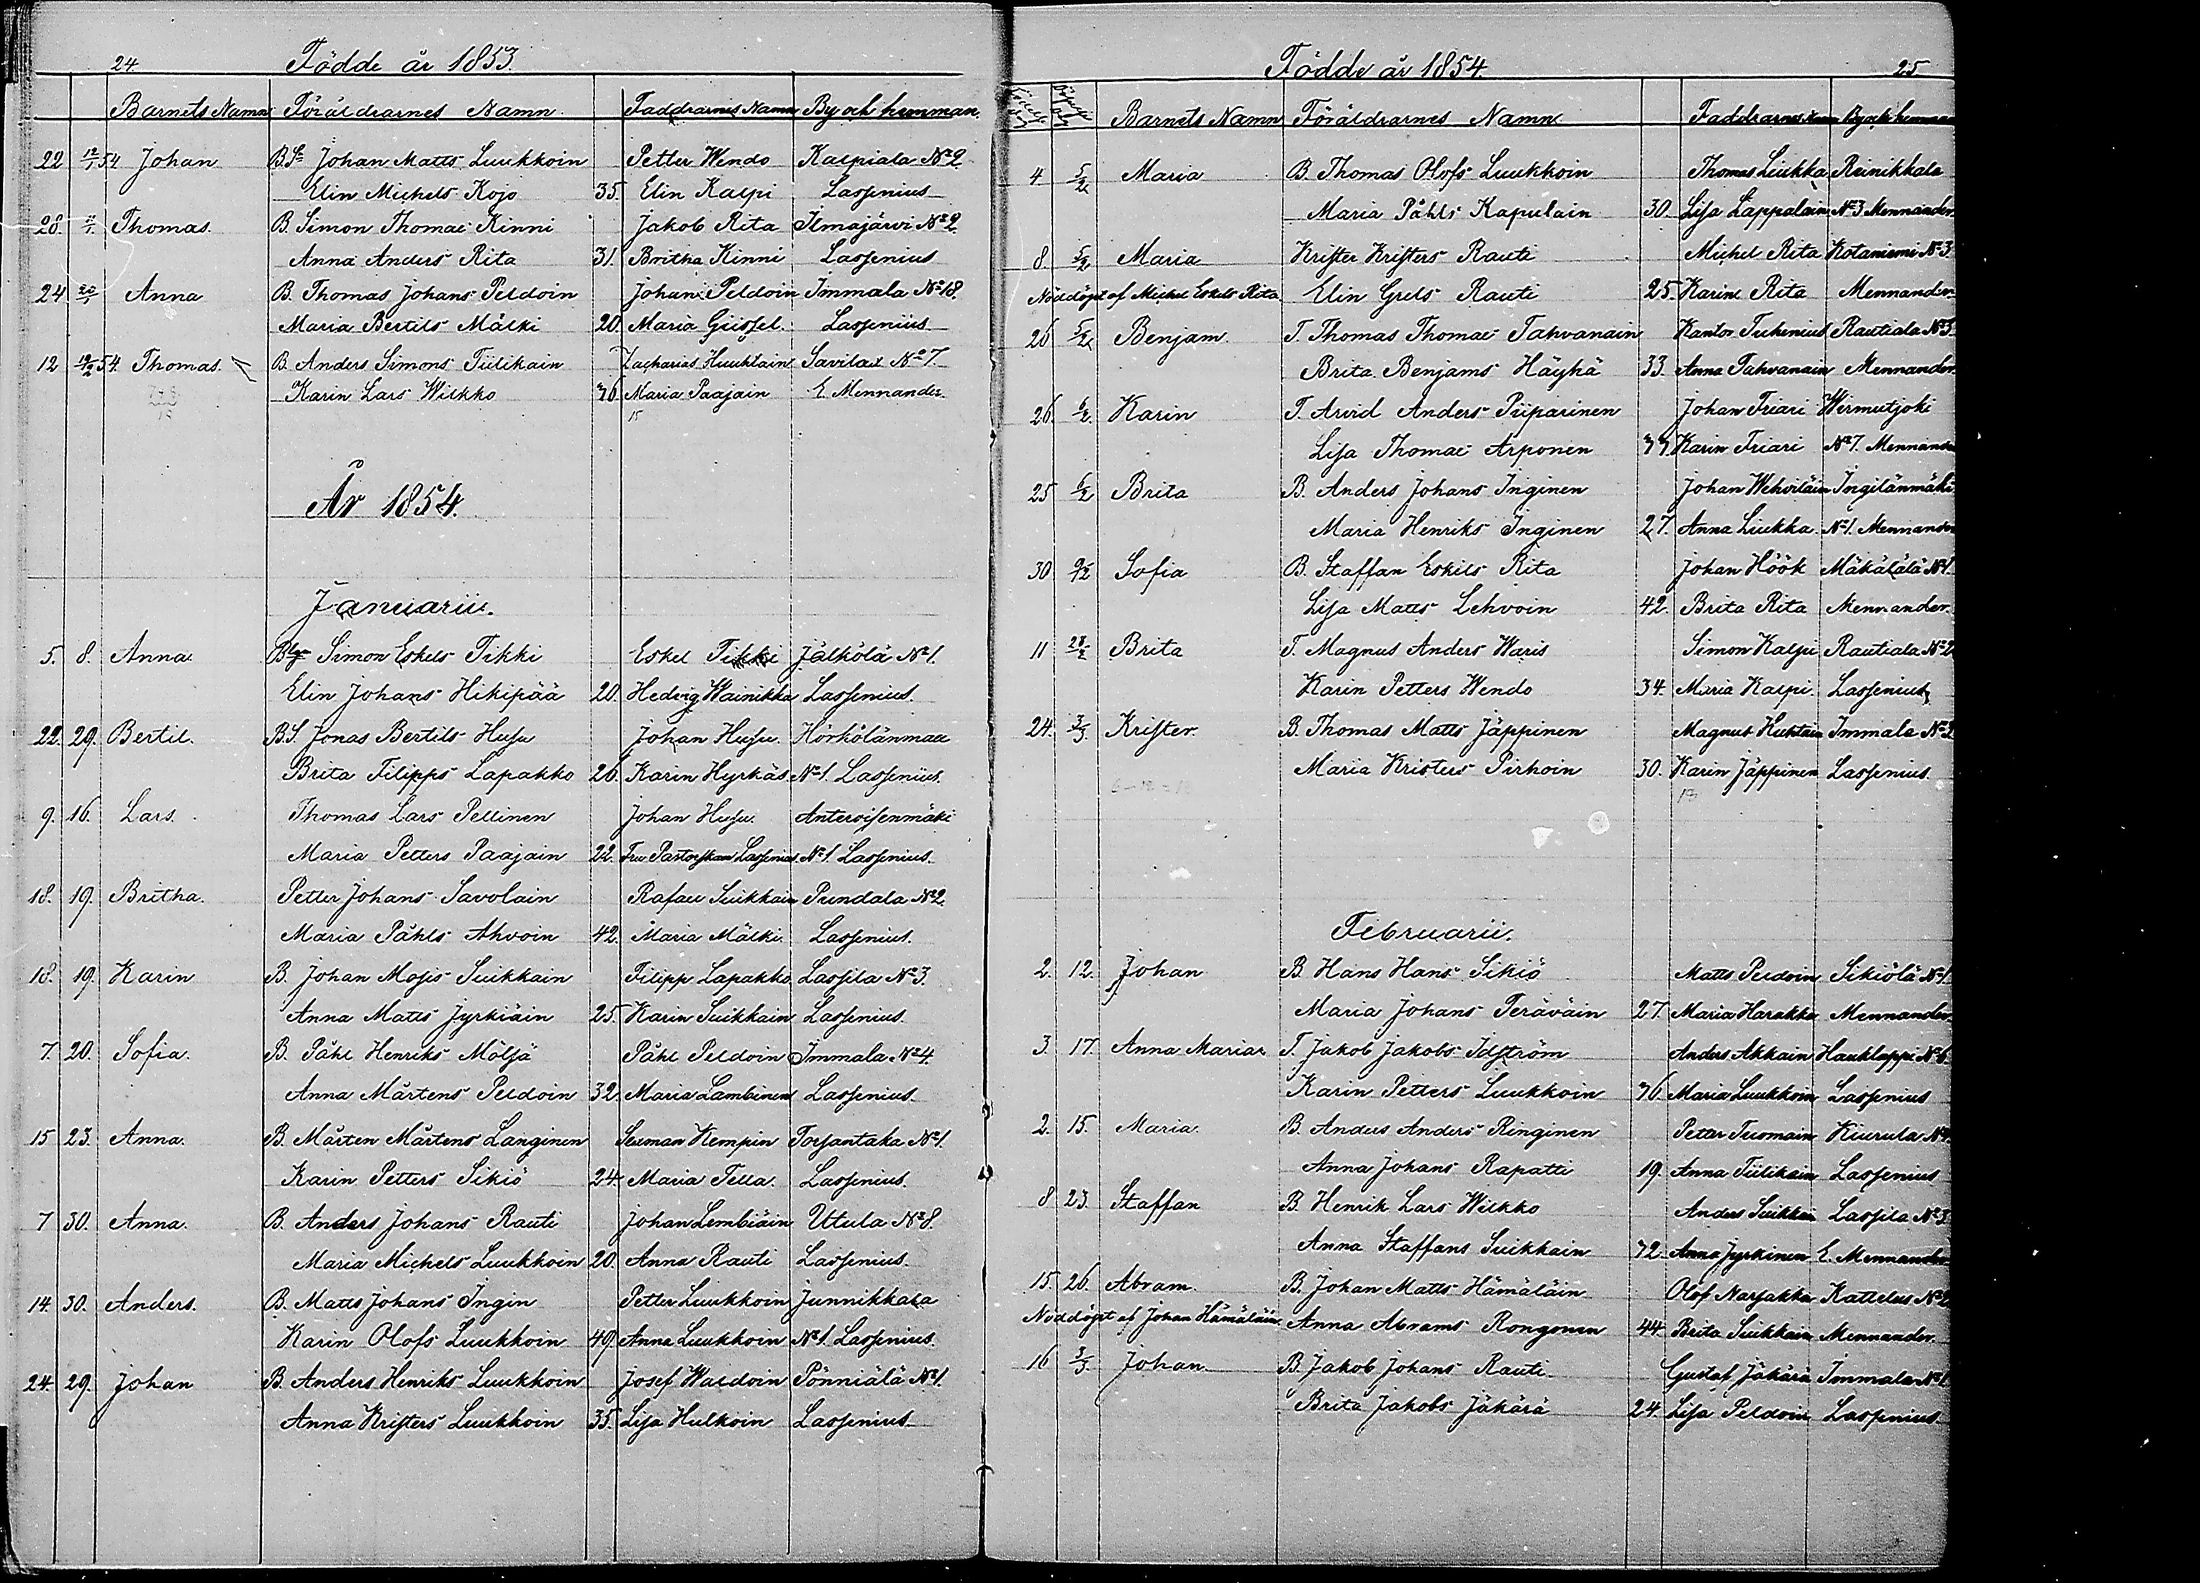 24. Födde år 1853.
Barnets Namn Föräldrarnes Namn Faddrarnes Namn By och hemman.
22 12/1 54 Johan BSn Johan Matts Luukkoin Petter Wendo Kalpiala No 2
Elin Michels Kojo 35. Elin Kalpi Lassenius
28. Thomas. B. Simon Thomae Kinni Jakob Rita Ilmajärvi No 2
Anna Anders Rita 31. Britha Kinni Lassenius
24 Anna B. Thomas Johans Peldoin Johan Peldoin Immala No 18.
Maria Bertils Mälki 20. Maria Lassenius
12 12/2 54. Thomas. B. Anders Simons Tiilikain Zacharias Huuhtain Savilax No 7.
Karin Lars Wilkko 36 Maria Paajain E Mennander.
År 1854.
Januarii.
5. 8. Anna Simon Eskels Tikki Eskel Tikki Jälkölä No 1.
Elin Johans Hikipää 20. Hedvig Wainikka Lassenius.
22. 29. Bertil. BS Jonas Bertils Husu Johan Husu. Hörkölänmaa
Brita Filipps Lapakko 26. Karin Hyrkäs No 1. Lassenius.
9. 16. Lars. Thomas Lars Pellinen Johan Husu. Anteroisenmäki
Maria Petters Paajain 22. Fru Pastorskan Lassenius No 1. Lassenius.
18. 19. Britha. Petter Johans Savolain Rafael Suikkain Pundala No 2
Maria Påhls Ahvoin 42. Maria Mälki. Lassenius.
18. 19. Karin B. Johan Mojs Suikkain Filipp Lapakko Lassila No 3.
Anna Matts Jyrkiäin 25. Karin Suikkain Lassenius.
7. 20. Sofia. B. Påhl Henriks Möljä Påhl Peldoin Immala No 4.
Anna Mårtens Peldoin 32. Maria Lambinen Lassenius.
15 23. Anna. B. Mårten Mårtens Langinen Sexman Kempin Torsantaka No 1.
Karin Petters Sikiö 24 Maria Tella. Lassenius.
7 30. Anna. B. Anders Johans Rauti Johan Lembiäin Utula No 8.
Maria Michels Luukkoin 20. Anna Rauti Lassenius.
14. 30. Anders. B. Matts Johans Ingin Petter Luukkoin Junnikkala
Karin Olofs Luukkoin 49. Anna Luukkoin No 1. Lassenius.
24. 29. Johan B. Anders Henriks Luukkoin Josef Waldoin Pönniälä No 1.
Anna Kristers Luukkoin 35. Lisa Hulkoin Lassenius.
Födde år 1854. 25
Barnets Namn Föräldrarnes Namn Faddrarnes Namn By och hemman
4 5/2 Maria B. Thomas Olofs Luukkoin Thomas Liukka Reinikkala
Maria Påhls Kapulain 30. Lisa Lappalain No 3 Mennander.
8 5/2 Maria Krister Kristers Rauti Michel Rita Kotaniemi No 3.
Nöddöpt af Michel Eskels Rita Elin Grels Rauti 25. Karin Rita Mennander.
26 5/2 Benjam T. Thomas Thomae Tahvanain Kantor Tuhenius Rautiala No 3
Brita Benjams Häyhä 33. Anna Tahvanain Mennander.
26. 6/2. Karin T. Arvid Anders Piiparinen Johan Friari Wirmutjoki
Lisa Thomae Arponen 37 Karin Friari No 7. Mennander
25 6/2 Brita B. Anders Johans Inginen Johan Wehviläin Ingilänmäki
Maria Henriks Inginen 27. Anna Liukka No 1. Mennander
30 9/2 Sofia B. Staffan Eskils Rita Johan Höök Mäkälälä No 1.
Lisa Matts Lehvoin 42. Brita Rita Mennander.
11 28/2 Brita T. Magnus Anders Waris Simon Kalpi Rautiala No 2
Karin Petters Wendo 34. Maria Kalpi. Lassenius
24. 3/3. Krister. B. Thomas Matts Jäppinen Magnus Huhtain Immala No 2
Maria Kristers Pirhoin 30. Karin Jäppinen Lassenius.
Februarii.
2. 12. Johan B. Hans Hans Sikiö Matts Peldoin Sikiölä No 1.
Maria Johans Teräväin 27. Maria Harakka Mennander.
3. 17. Anna Maria T. Jakob Jakobs Idström Anders Akkain Hauklappi No 6.
Karin Petters Luukkoin 36 Maria Luukkoin Lassenius
2. 15. Maria. B. Anders Anders Ringinen Petter Tuomain Kiurula
Anna Johans Rapatti 19. Anna Tiilikain Lassenius
8 23. Staffan B. Henrik Lars Wilkko Anders Suikkain Lassila No 3
Anna Staffans Suikkain 32. Anna Jyrkinen E. Mennander
15. 26. Abram. B. Johan Matts Hämäläin Olof Narjakka Kattelus No 2
Nöddöpt af Johan Hämäläin Anna Abrams Rongonen 44. Brita Suikkain Mennander.
16 3/3. Johan. B. Jakob Johans Rauti Gustaf Jäkärä Immala No 1
Brita Jakobs Jäkärä 24. Lisa Peldoin Lassenius.